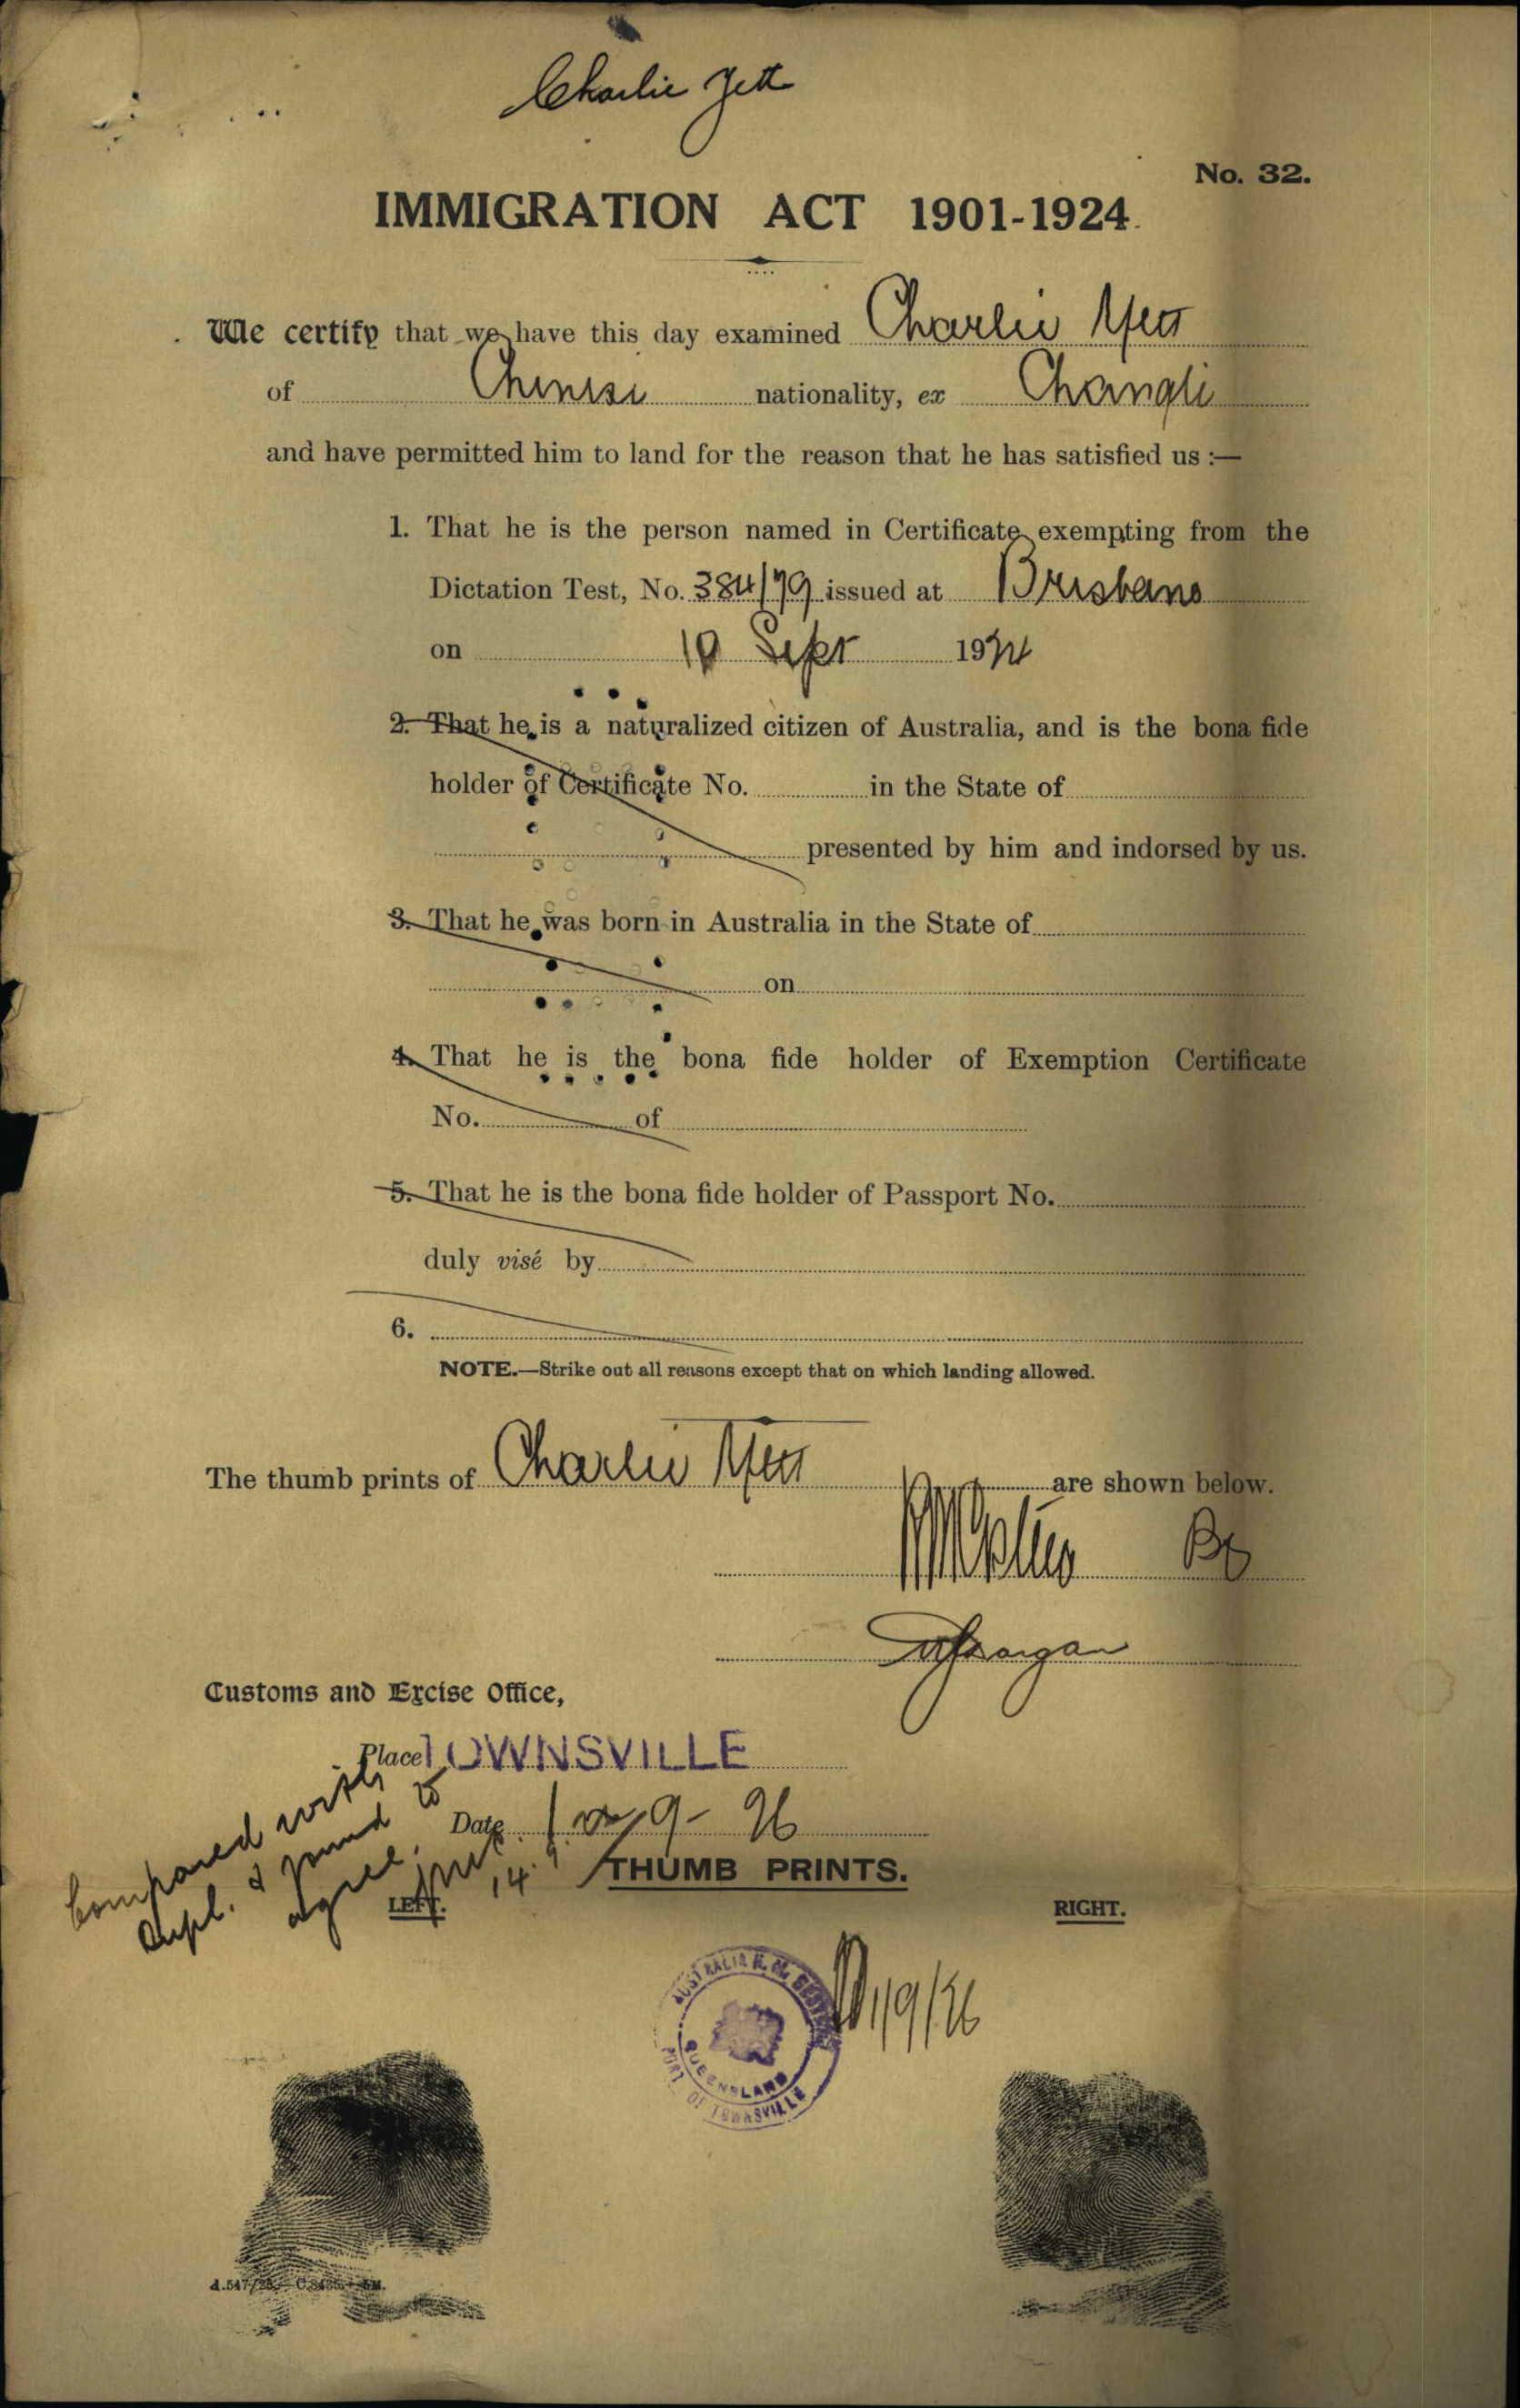 Charlie Yett
No. 32.
IMMIGRATION ACT 1901-1924.
We certify that we have this day examined Charlie Yett
of Chinese nationality, ex Changte
and have permitted him to land for the reason that he has satisfied us :—
1. That he is the person named in Certificate exempting from the
Dictation Test, No. 384/79 issued at Brisbane
on Sept 1924
2. That he is a naturalized citizen of Australia, and is the bona fide
holder of Certificate No. in the State of
presented by him and indorsed by us.
3. That he was born in Australia in the State of
on
4. That he is the bona fide holder of Exemption Certificate
No. of
5. That he is the bona fide holder of Passport No.
duly visé by
6.
NOTE.—Strike out all reasons except that on which landing allowed.
The thumb prints of Charlie Yett are shown below.
Customs and Excise Office,
Place TOWNSVILLE
Date 1 9 - 26
Compared with
Dupl. & found to
agree.
14.9
THUMB PRINTS.
LEFT.
RIGHT.
1/9/26
AUSTRALIA H. M. CUSTOMS
QUEENSLAND
PORT OF TOWNSVILLE